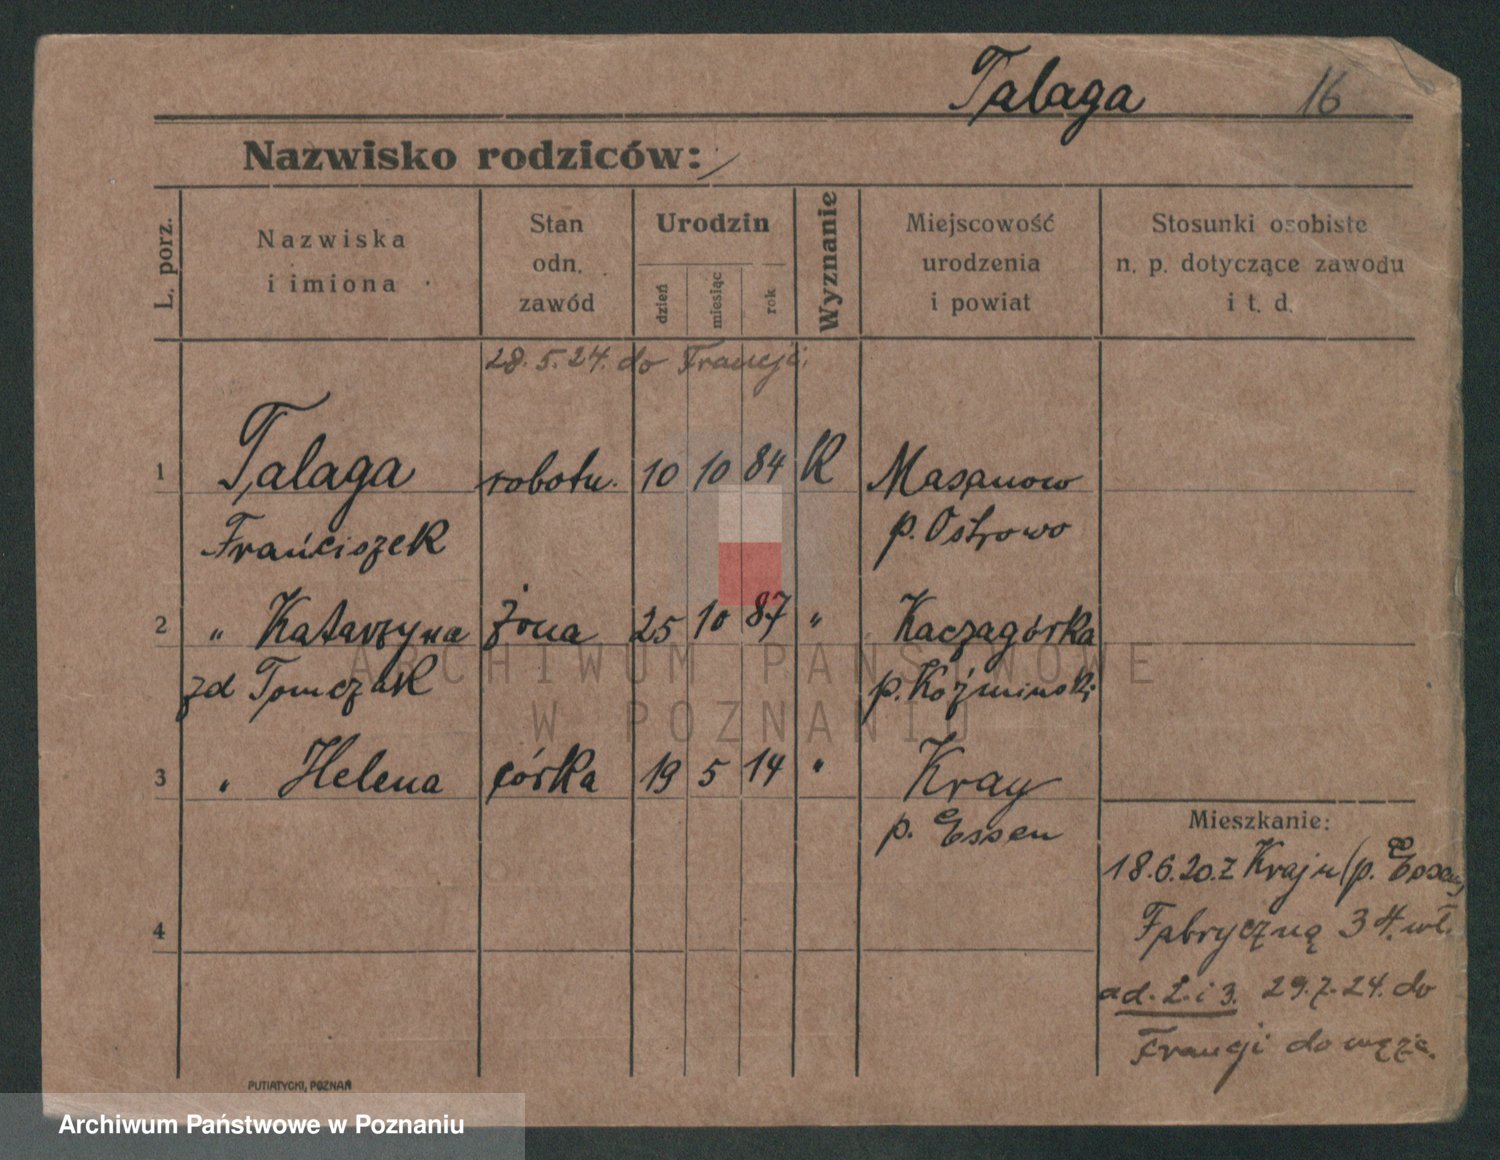 Talaga 16
Nazwisko rodziców: /
L. porz.
Nazwiska
i imiona
Stan
odn.
zawód
Urodzin
dzień
miesiąc
rok
Wyznanie
Miejscowość
urodzenia
i powiat
Stosunki osobiste
n. p. dotyczące zawodu
i t. d.
28.5.24. do Francji.
1 Talaga robotn. 10 10 84 K Masanow
Franciszek p. Ostrowo
2 " Katarzyna żona 25 10 87 " Kaczagórka
zd Tomczak p. Koźminski
ARCHIWUM PAŃSTWOWE
W POZNANIU
3 " Helena córka 19 5 14 " Kray
p. Essen
Mieszkanie:
18.6.20. z Kraju (p. Essen)
4 Fabryczną 34. wł.
ad. 2. i 3. 29.7.24. do
Francji do męża.
PUTIATYCKI, POZNAŃ
Archiwum Państwowe w Poznaniu